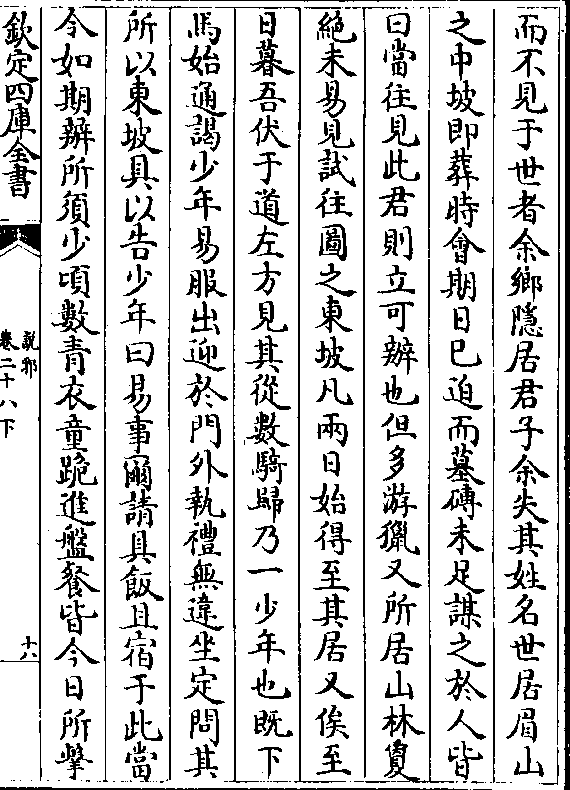 而不見于世者余鄉隱居君子余失其姓名世居眉山
之中坡即葬時會期日已迫而墓磚未足謀之於人皆
曰當往見此君則立可辦也但多游獵又所居山林敻
絶未易見試往圖之東坡凡兩日始得至其居又俟至
日暮吾伏于道左方見其從數騎歸乃一少年也既下
馬始通謁少年易服出迎於門外執禮無違坐定問其
所以東坡具以告少年曰易事爾請具飯且宿于此當
令如期辦所須少頃數青衣童跪進盤餐皆今日所擊
欽定四庫全書
說郛
卷二十八下
十八